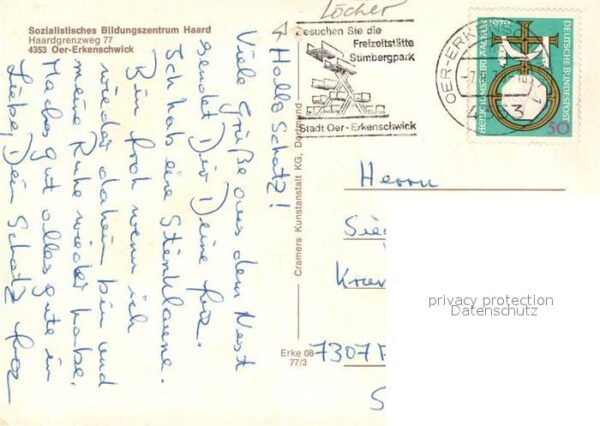 Sozialistisches Bildungszentrum Haard
Haardgrenzweg 77
4353 Oer-Erkenschwick
Löcher
Besuchen Sie die
Freizeitstätte
Stimbergpark
Stadt Oer-Erkenschwick
OER-ERKENS
1979
DEUTSCHE BUNDESPOST
50
Hallo Schatz!
Viele Grüße aus dem Nest
sendet Dir Deine
Ich hab eine Stinklaune.
Bin froh wenn ich
wieder daheim bin und
meine Ruhe wieder habe.
Machs gut alles gute in
Liebe, Dein Schatz
Cramers Kunstanstalt KG,
Erke 08
77/3
Herrn
Sieg
7307
S
privacy protection
Datenschutz